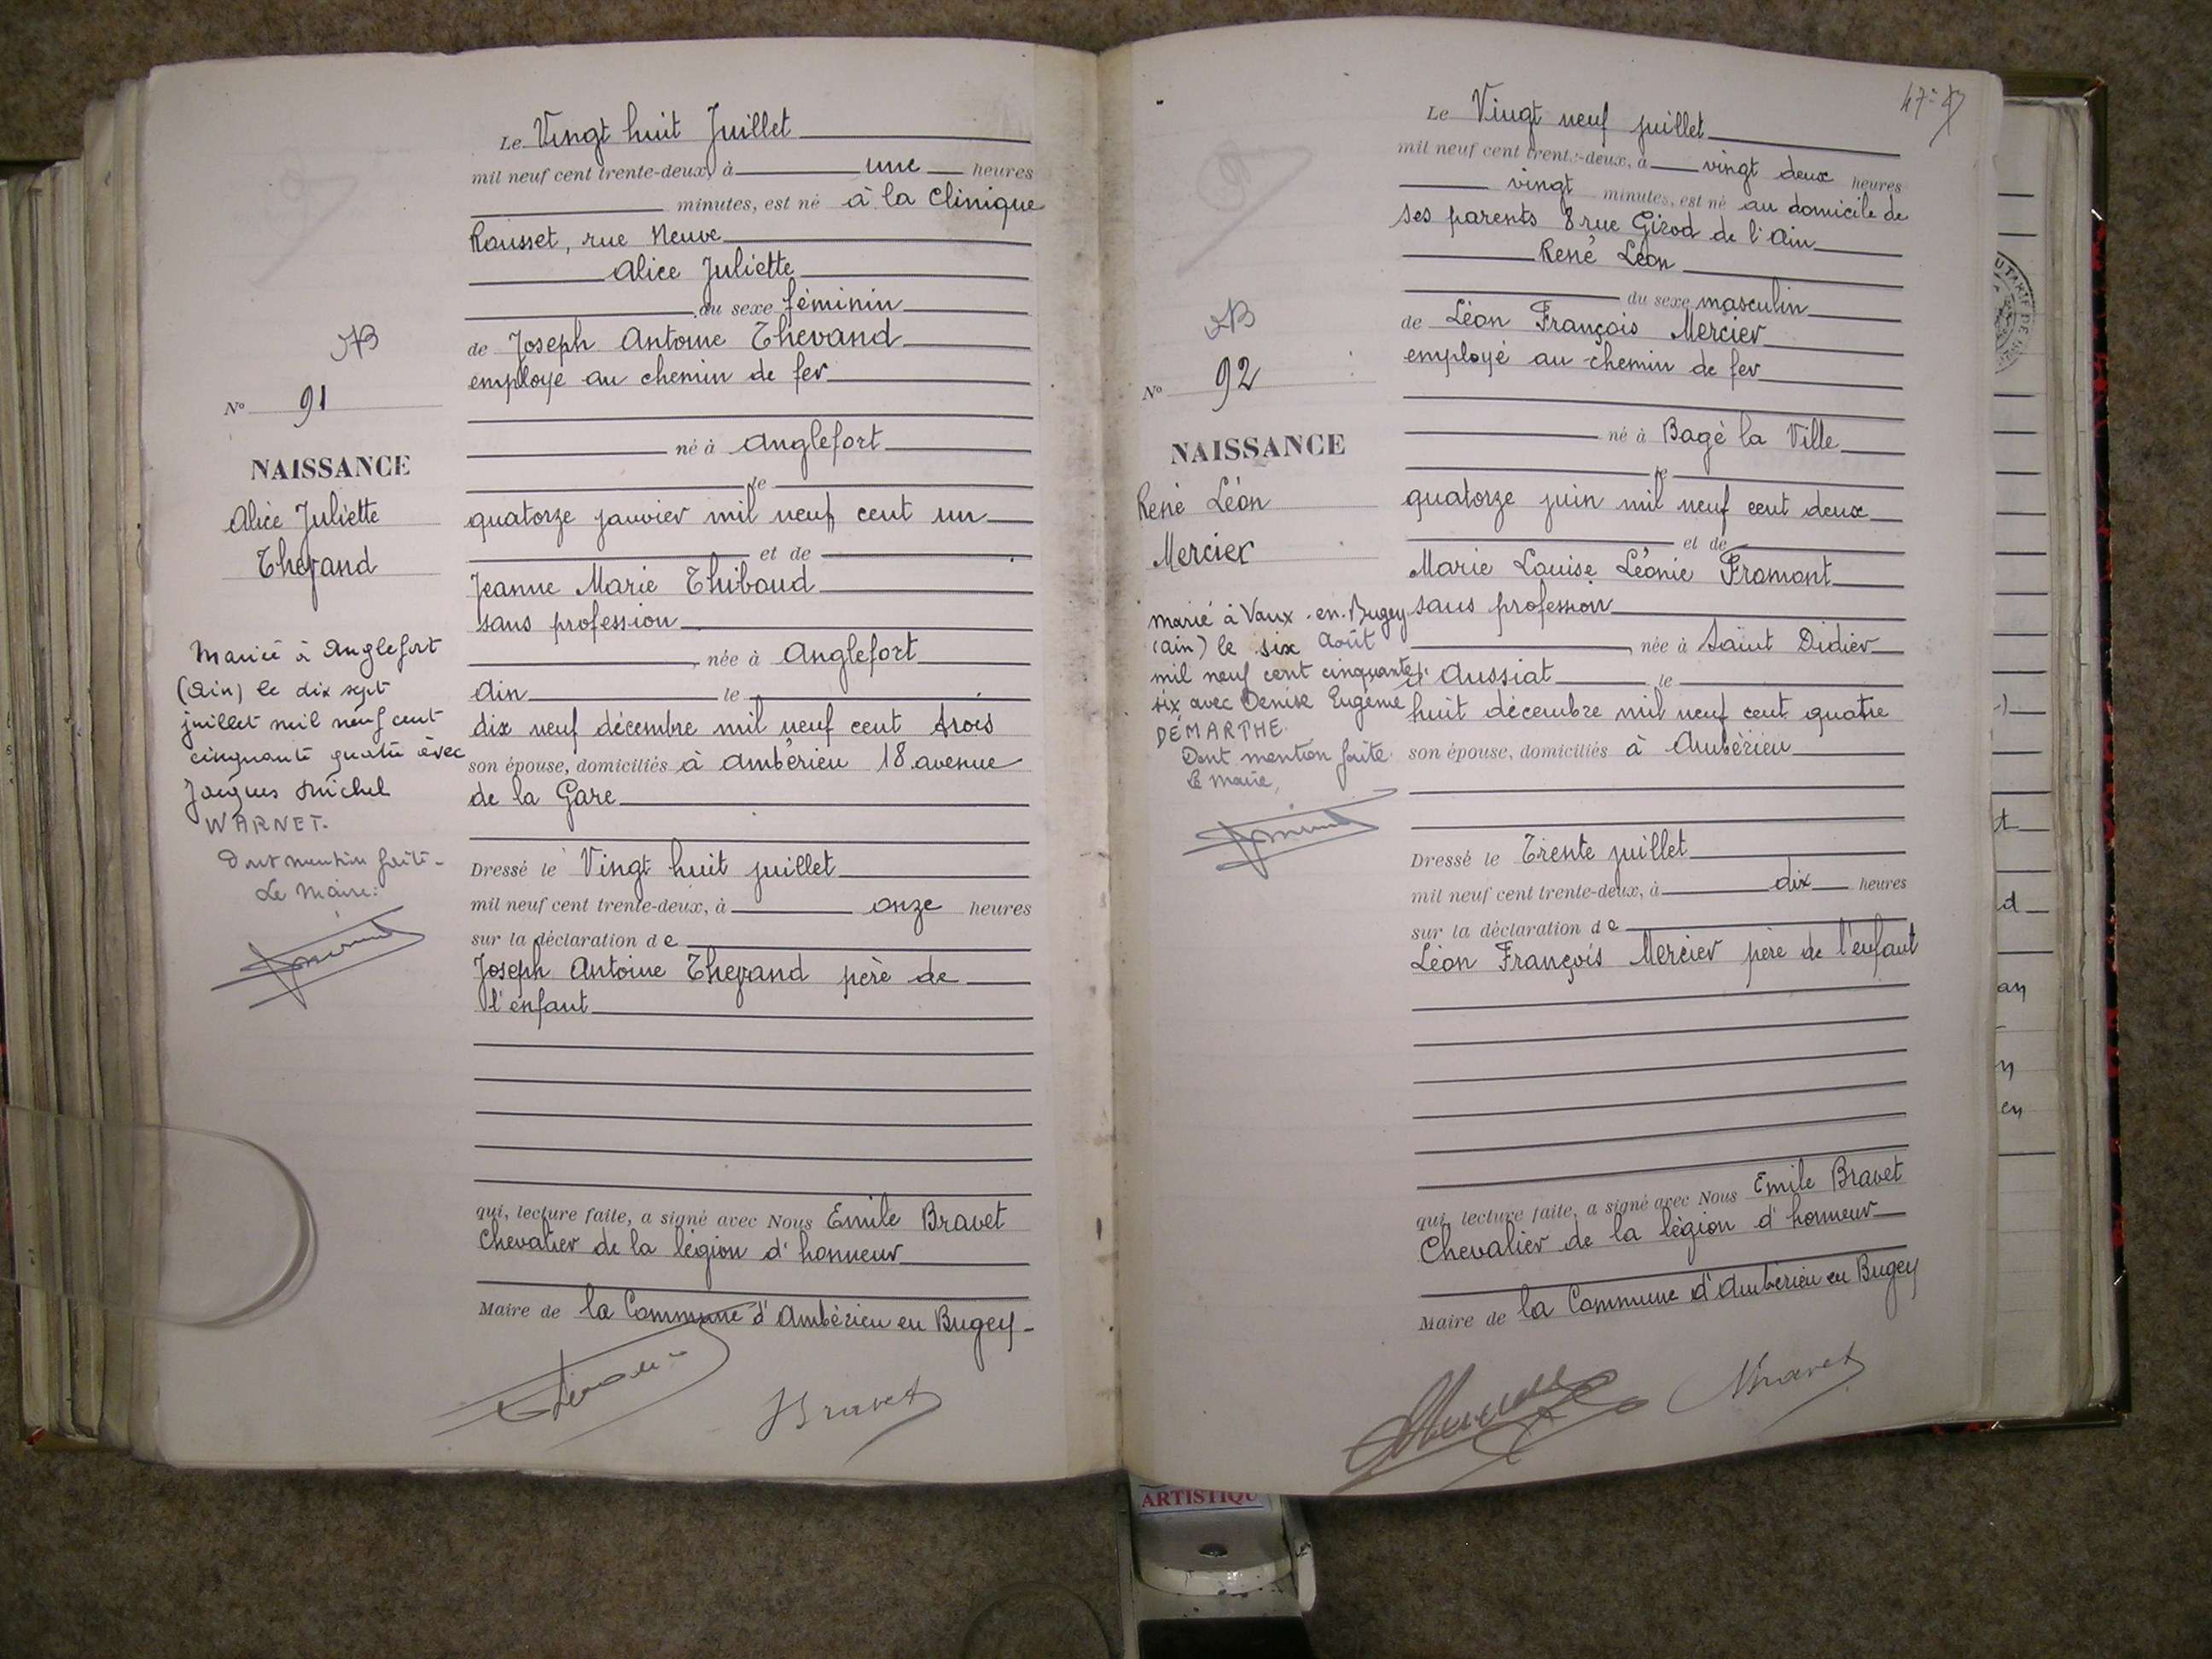 Le Vingt huit Juillet
mil neuf cent trente-deux, à une heures
minutes, est né à la Clinique
Rousset, rue Neuve
Alice Juliette
du sexe féminin
de Joseph Antoine Thevand
employé au chemin de fer
né à Anglefort
le
quatorze janvier mil neuf cent un
et de
Jeanne Marie Thibaud
sans profession
née à Anglefort
Ain le
dix neuf décembre mil neuf cent trois
son épouse, domiciliés à Ambérieu 18 avenue
de la Gare
Dressé le Vingt huit juillet
mil neuf cent trente-deux, à onze heures
sur la déclaration de
Joseph Antoine père de
l'enfant
qui, lecture faite, a signé avec Nous Emile Bravet
Chevalier de la légion d'honneur
Maire de la Commune d'Ambérieu en Bugey
Bravet
No 91
NAISSANCE
Alice Juliette
Mariée à Anglefort
(Ain) le dix sept
juillet mil neuf cent
cinquante quatre avec
Jacques Michel
WARNET.
Dont mention faite -
Le Maire:
47
Le Vingt neuf juillet
mil neuf cent trente-deux, à vingt deux heures
vingt minutes, est né au domicile de
ses parents 8 rue Girod de l'Ain
René Léon
du sexe masculin
de Léon François Mercier
employé au chemin de fer
né à Bagé la Ville
le
quatorze juin mil neuf cent deux
et de
Marie Louise Léonie Fromont
sans profession
née à Saint Didier
d'Aussiat le
huit décembre mil neuf cent quatre
son épouse, domiciliés à Ambérieu
Dressé le Trente juillet
mil neuf cent trente-deux, à dix heures
sur la déclaration de
Léon François Mercier père de l'enfant
qui, lecture faite, a signé avec Nous Emile Bravet
Chevalier de la légion d'honneur
Maire de la Commune d'Ambérieu en Bugey
Bravet
No 92
NAISSANCE
René Léon
Mercier
marié à Vaux-en-Bugey
(Ain) le six Août
mil neuf cent cinquante
six avec Denise Eugénie
DÉMARTHE.
Dont mention faite.
Le Maire,
ARTISTIQU